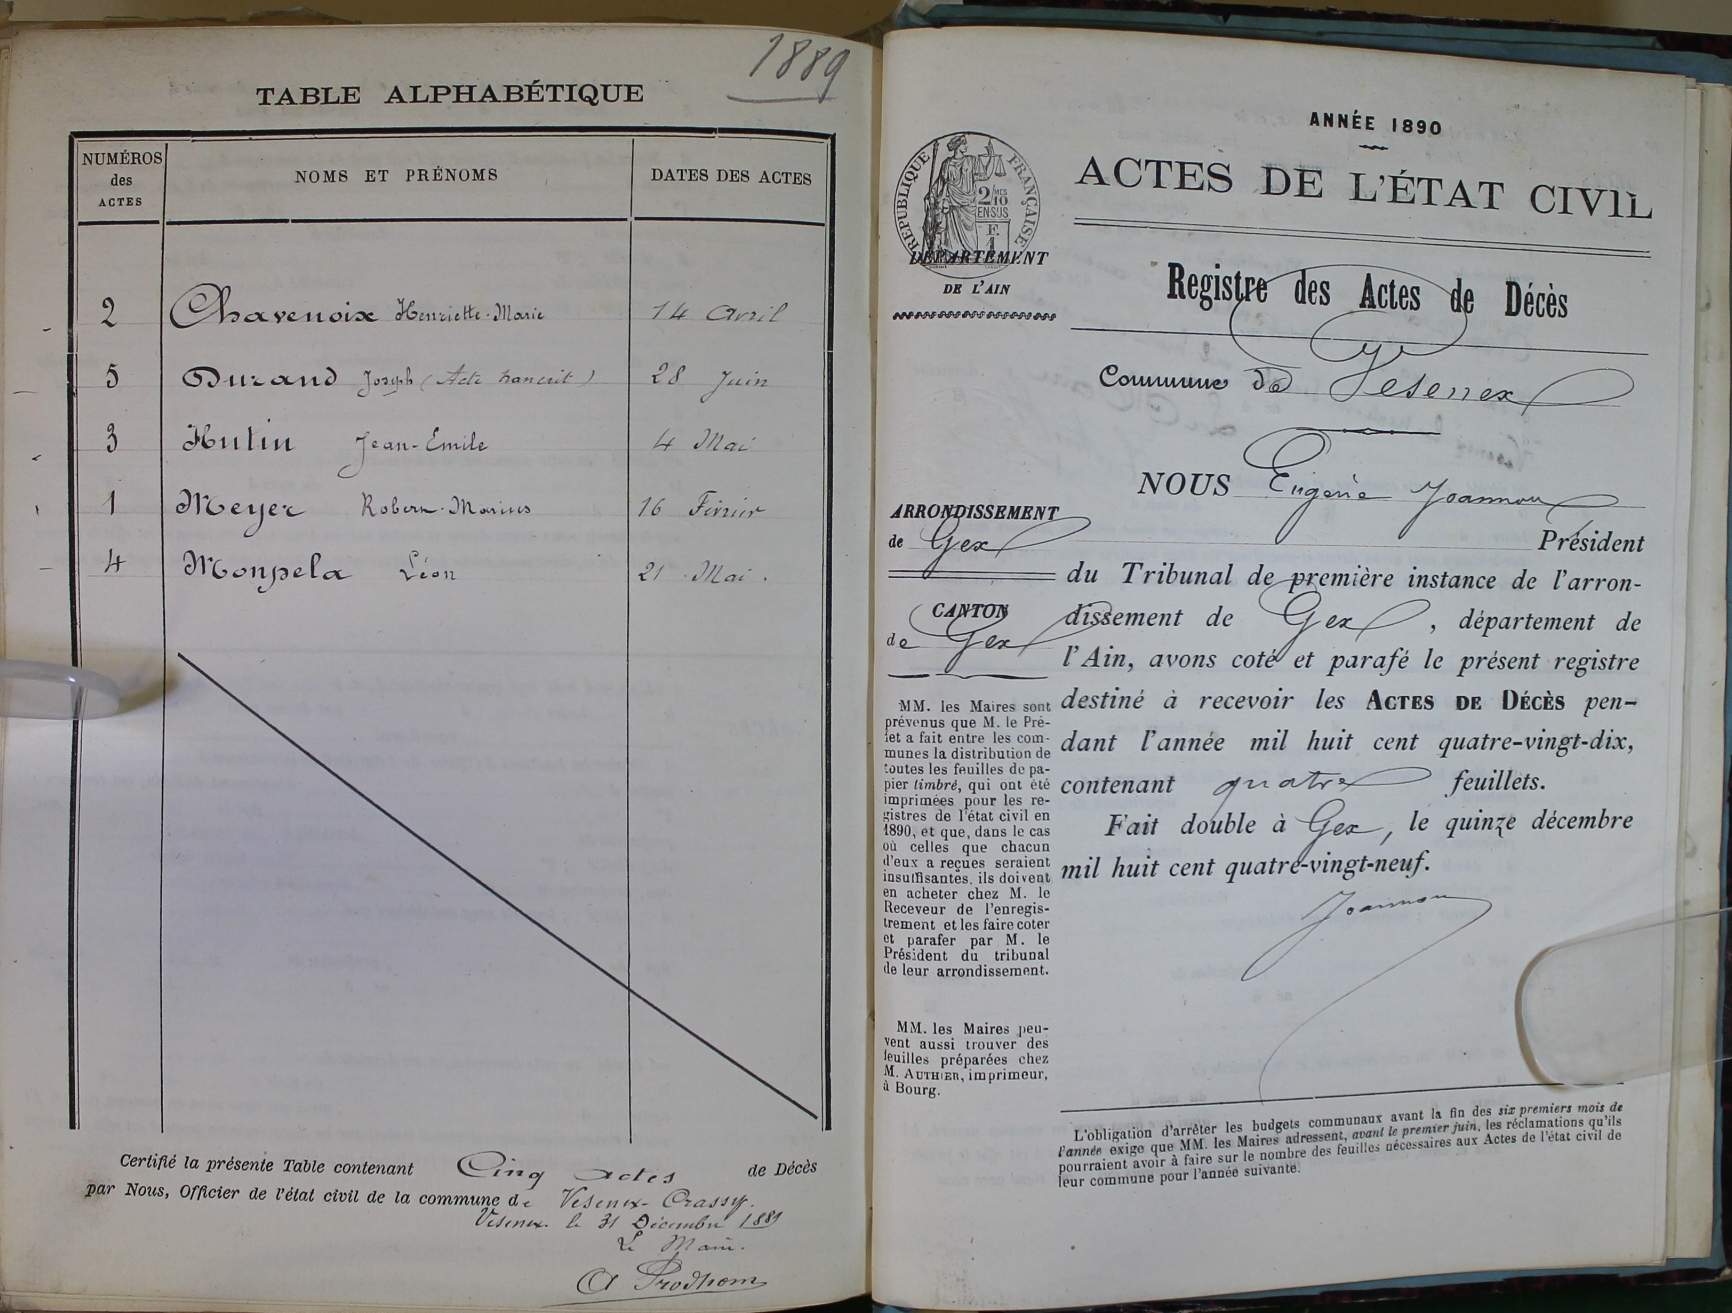 1889
TABLE ALPHABÉTIQUE
NUMÉROS des ACTES NOMS ET PRÉNOMS DATES DES ACTES
2 Chavenoix Henriette-Marie 14 Avril
5 Durand Joseph (Acte transcrit) 28 Juin
3 Hutin Jean-Emile 4 Mai
1 Meyer Robert-Marius 16 Février
4 Monpela Léon 21 Mai.
Certifié la présente Table contenant Cinq actes de Décès
par Nous, Officier de l'état civil de la commune de Vesenex-Crassy.
Vesenex le 31 Décembre 1889
Le Maire.
Prodhom
ANNÉE 1890
ACTES DE L'ÉTAT CIVIL
RÉPUBLIQUE FRANÇAISE
2/10
EN SUS
F.
1
DÉPARTEMENT
DE L'AIN
Registre des Actes de Décès
Commune de Vesenex
NOUS Eugène Joannon
Président
du Tribunal de première instance de l'arron-
dissement de Gex, département de
l'Ain, avons coté et parafé le présent registre
destiné à recevoir les ACTES DE DÉCÈS pen-
dant l'année mil huit cent quatre-vingt-dix,
contenant quatre feuillets.
Fait double à Gex, le quinze décembre
mil huit cent quatre-vingt-neuf.
Joannon
ARRONDISSEMENT
de Gex
CANTON
de Gex
MM. les Maires sont
prévenus que M. le Pré-
fet a fait entre les com-
munes la distribution de
toutes les feuilles de pa-
pier timbré, qui ont été
imprimées pour les re-
gistres de l'état civil en
1890, et que, dans le cas
où celles que chacun
d'eux a reçues seraient
insuffisantes, ils doivent
en acheter chez M. le
Receveur de l'enregis-
trement et les faire coter
et parafer par M. le
Président du tribunal
de leur arrondissement.
MM. les Maires peu-
vent aussi trouver des
feuilles préparées chez
M. AUTHIER, imprimeur,
à Bourg.
L'obligation d'arrêter les budgets communaux avant la fin des six premiers mois de
l'année exige que MM. les Maires adressent, avant le premier juin, les réclamations qu'ils
pourraient avoir à faire sur le nombre des feuilles nécessaires aux Actes de l'état civil de
leur commune pour l'année suivante.